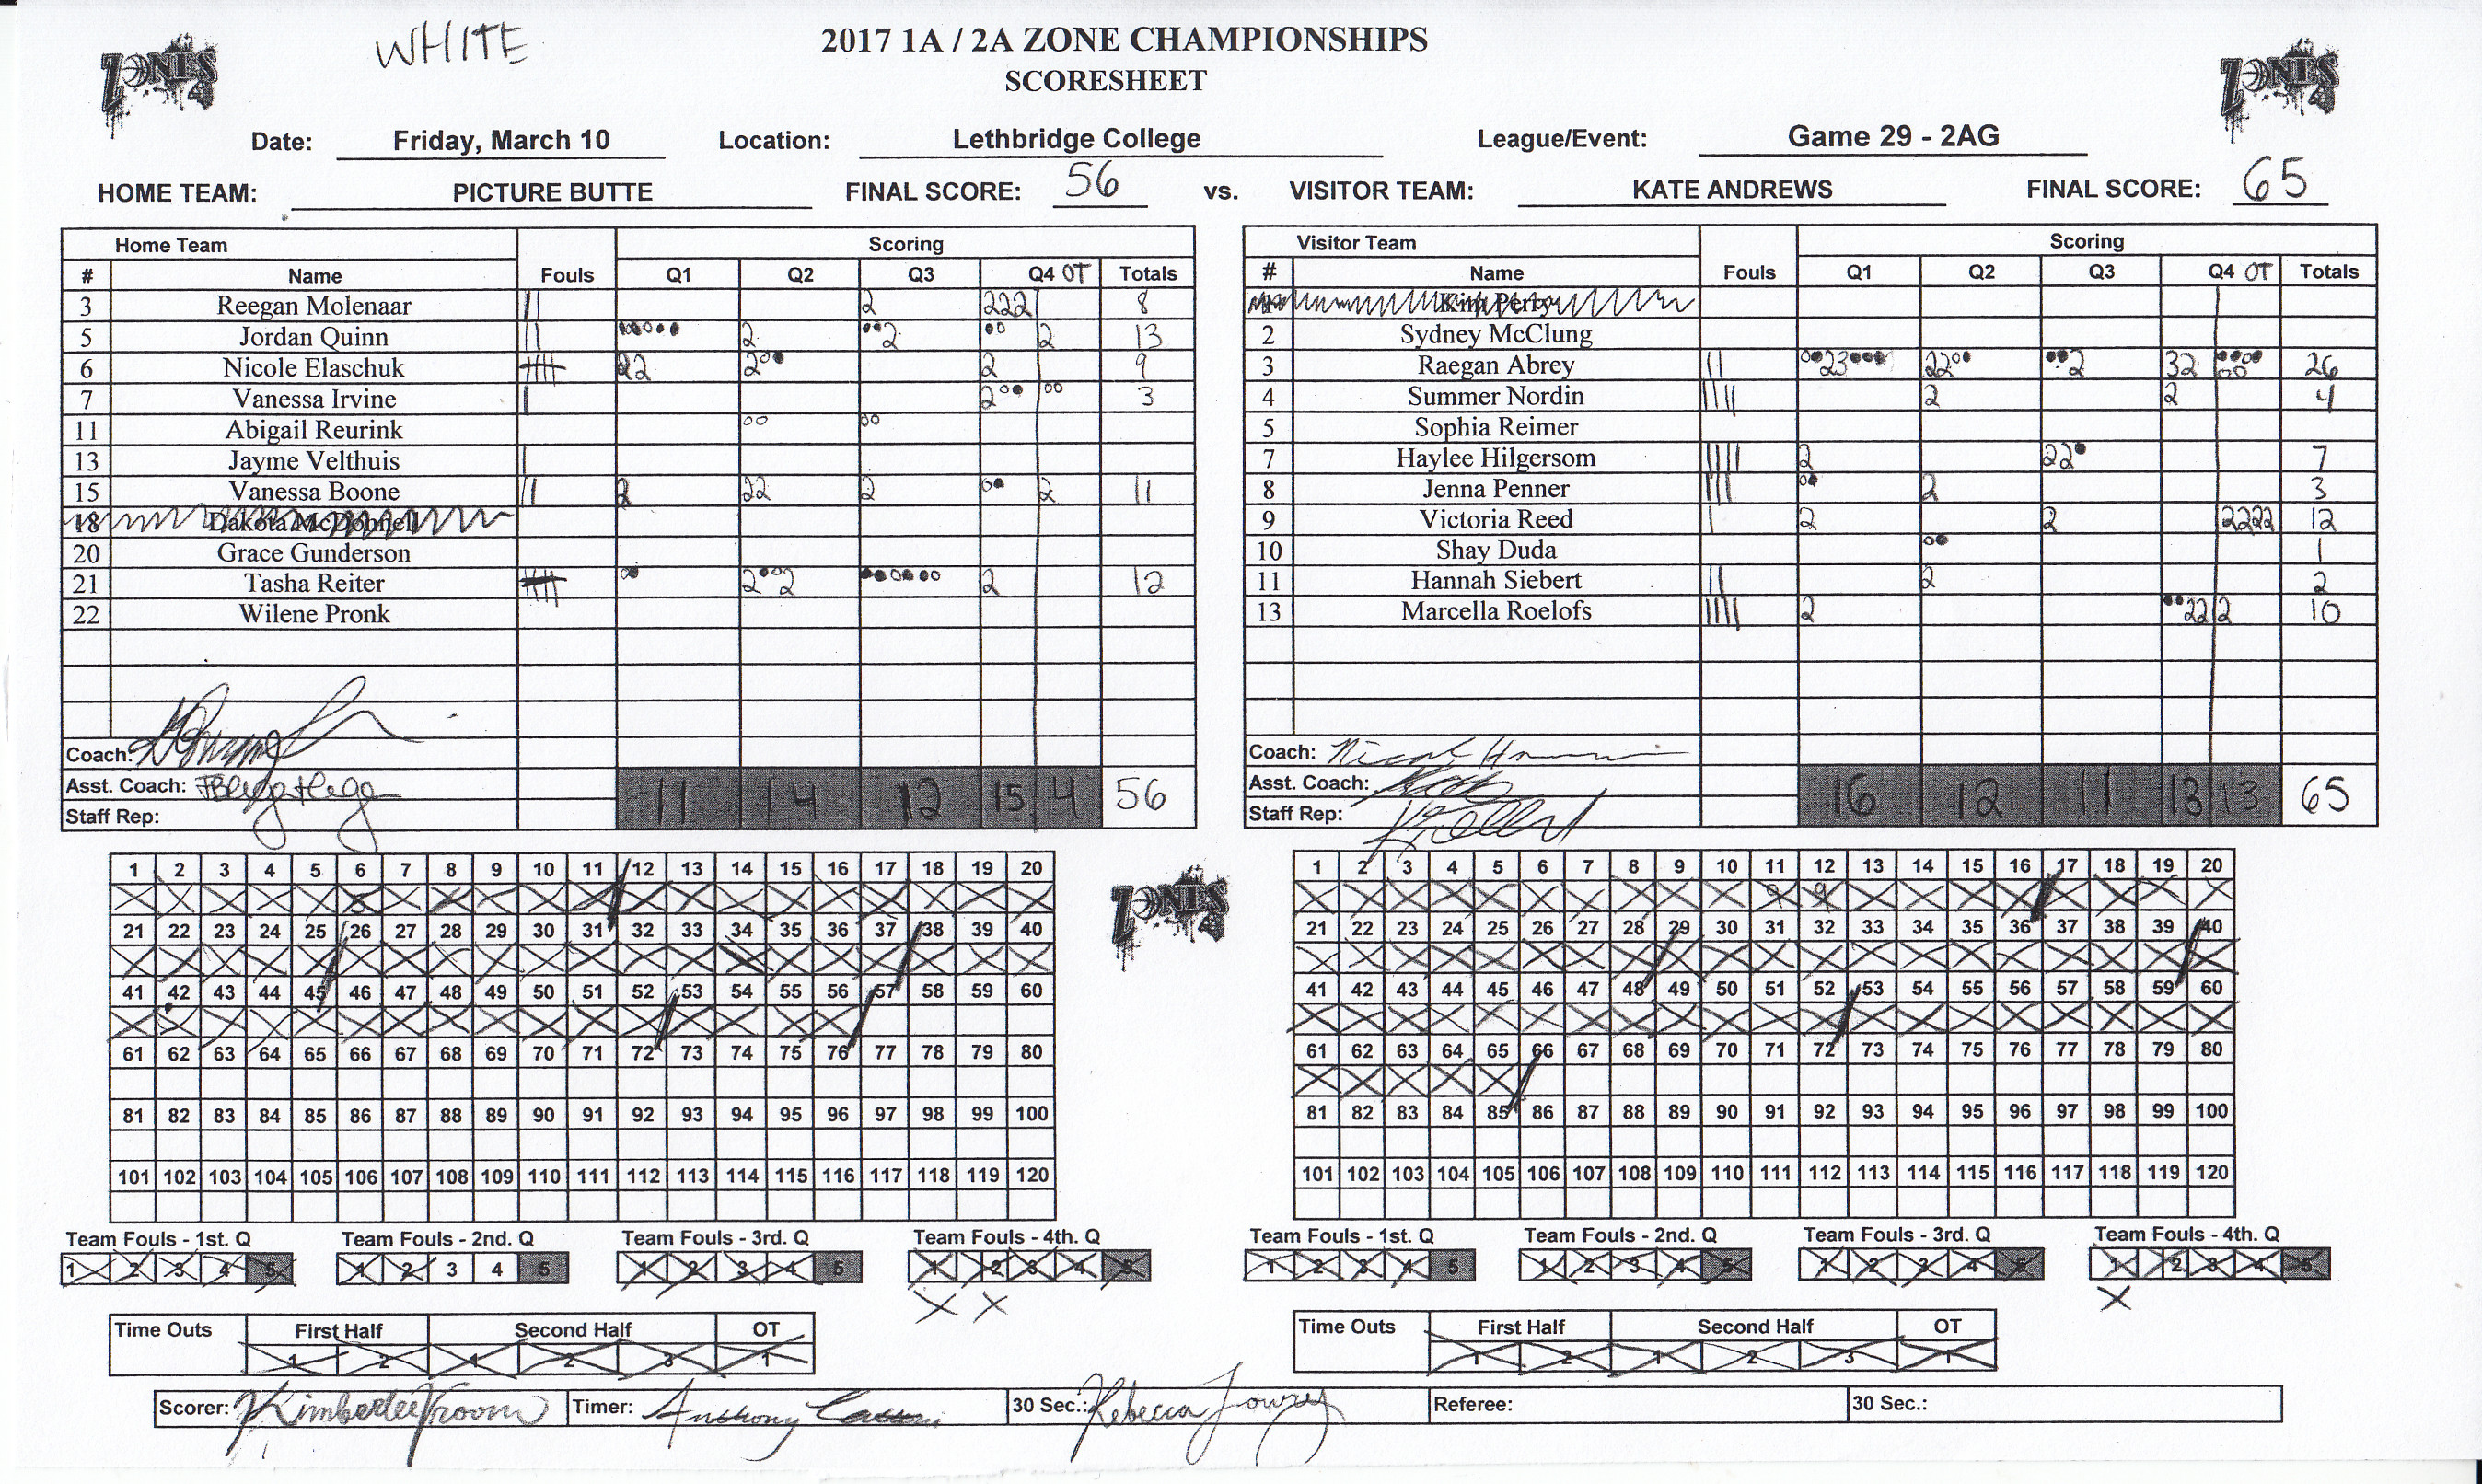 WHITE
2017 1A / 2A ZONE CHAMPIONSHIPS
SCORESHEET
ZONES
ZONES
Date: Friday, March 10 Location: Lethbridge College League/Event: Game 29 - 2AG
HOME TEAM: PICTURE BUTTE FINAL SCORE: 56 vs. VISITOR TEAM: KATE ANDREWS FINAL SCORE: 65
Home Team Fouls Scoring
# Name Q1 Q2 Q3 Q4 OT Totals
3 Reegan Molenaar 2 222 8
5 Jordan Quinn 2 2 2 13
6 Nicole Elaschuk 22 2 2 9
7 Vanessa Irvine 2 3
11 Abigail Reurink
13 Jayme Velthuis
15 Vanessa Boone 2 22 2 2 11
18 Dakota McDonnell
20 Grace Gunderson
21 Tasha Reiter 2 2 2 12
22 Wilene Pronk
Coach:
Asst. Coach:
Staff Rep:
11 14 12 15 4 56
Visitor Team Fouls Scoring
# Name Q1 Q2 Q3 Q4 OT Totals
2 Sydney McClung
3 Raegan Abrey 23 22 2 32 26
4 Summer Nordin 2 2 4
5 Sophia Reimer
7 Haylee Hilgersom 2 22 7
8 Jenna Penner 2 3
9 Victoria Reed 2 2 2222 12
10 Shay Duda 1
11 Hannah Siebert 2 2
13 Marcella Roelofs 2 22 2 10
Coach:
Asst. Coach:
Staff Rep:
16 12 11 13 13 65
1 2 3 4 5 6 7 8 9 10 11 12 13 14 15 16 17 18 19 20
21 22 23 24 25 26 27 28 29 30 31 32 33 34 35 36 37 38 39 40
41 42 43 44 45 46 47 48 49 50 51 52 53 54 55 56 57 58 59 60
61 62 63 64 65 66 67 68 69 70 71 72 73 74 75 76 77 78 79 80
81 82 83 84 85 86 87 88 89 90 91 92 93 94 95 96 97 98 99 100
101 102 103 104 105 106 107 108 109 110 111 112 113 114 115 116 117 118 119 120
ZONES
1 2 3 4 5 6 7 8 9 10 11 12 13 14 15 16 17 18 19 20
9 9
21 22 23 24 25 26 27 28 29 30 31 32 33 34 35 36 37 38 39 40
41 42 43 44 45 46 47 48 49 50 51 52 53 54 55 56 57 58 59 60
61 62 63 64 65 66 67 68 69 70 71 72 73 74 75 76 77 78 79 80
81 82 83 84 85 86 87 88 89 90 91 92 93 94 95 96 97 98 99 100
101 102 103 104 105 106 107 108 109 110 111 112 113 114 115 116 117 118 119 120
Team Fouls - 1st. Q Team Fouls - 2nd. Q Team Fouls - 3rd. Q Team Fouls - 4th. Q
1 2 3 4 5 1 2 3 4 5 1 2 3 4 5 1 2 3 4 5
X X
Team Fouls - 1st. Q Team Fouls - 2nd. Q Team Fouls - 3rd. Q Team Fouls - 4th. Q
1 2 3 4 5 1 2 3 4 5 1 2 3 4 5 1 2 3 4 5
X
Time Outs First Half Second Half OT
1 2 1 2 3 1
Time Outs First Half Second Half OT
1 2 1 2 3 1
Scorer: Kimberlee Kroom Timer: Anthony 30 Sec.: Rebecca Lowry Referee: 30 Sec.: